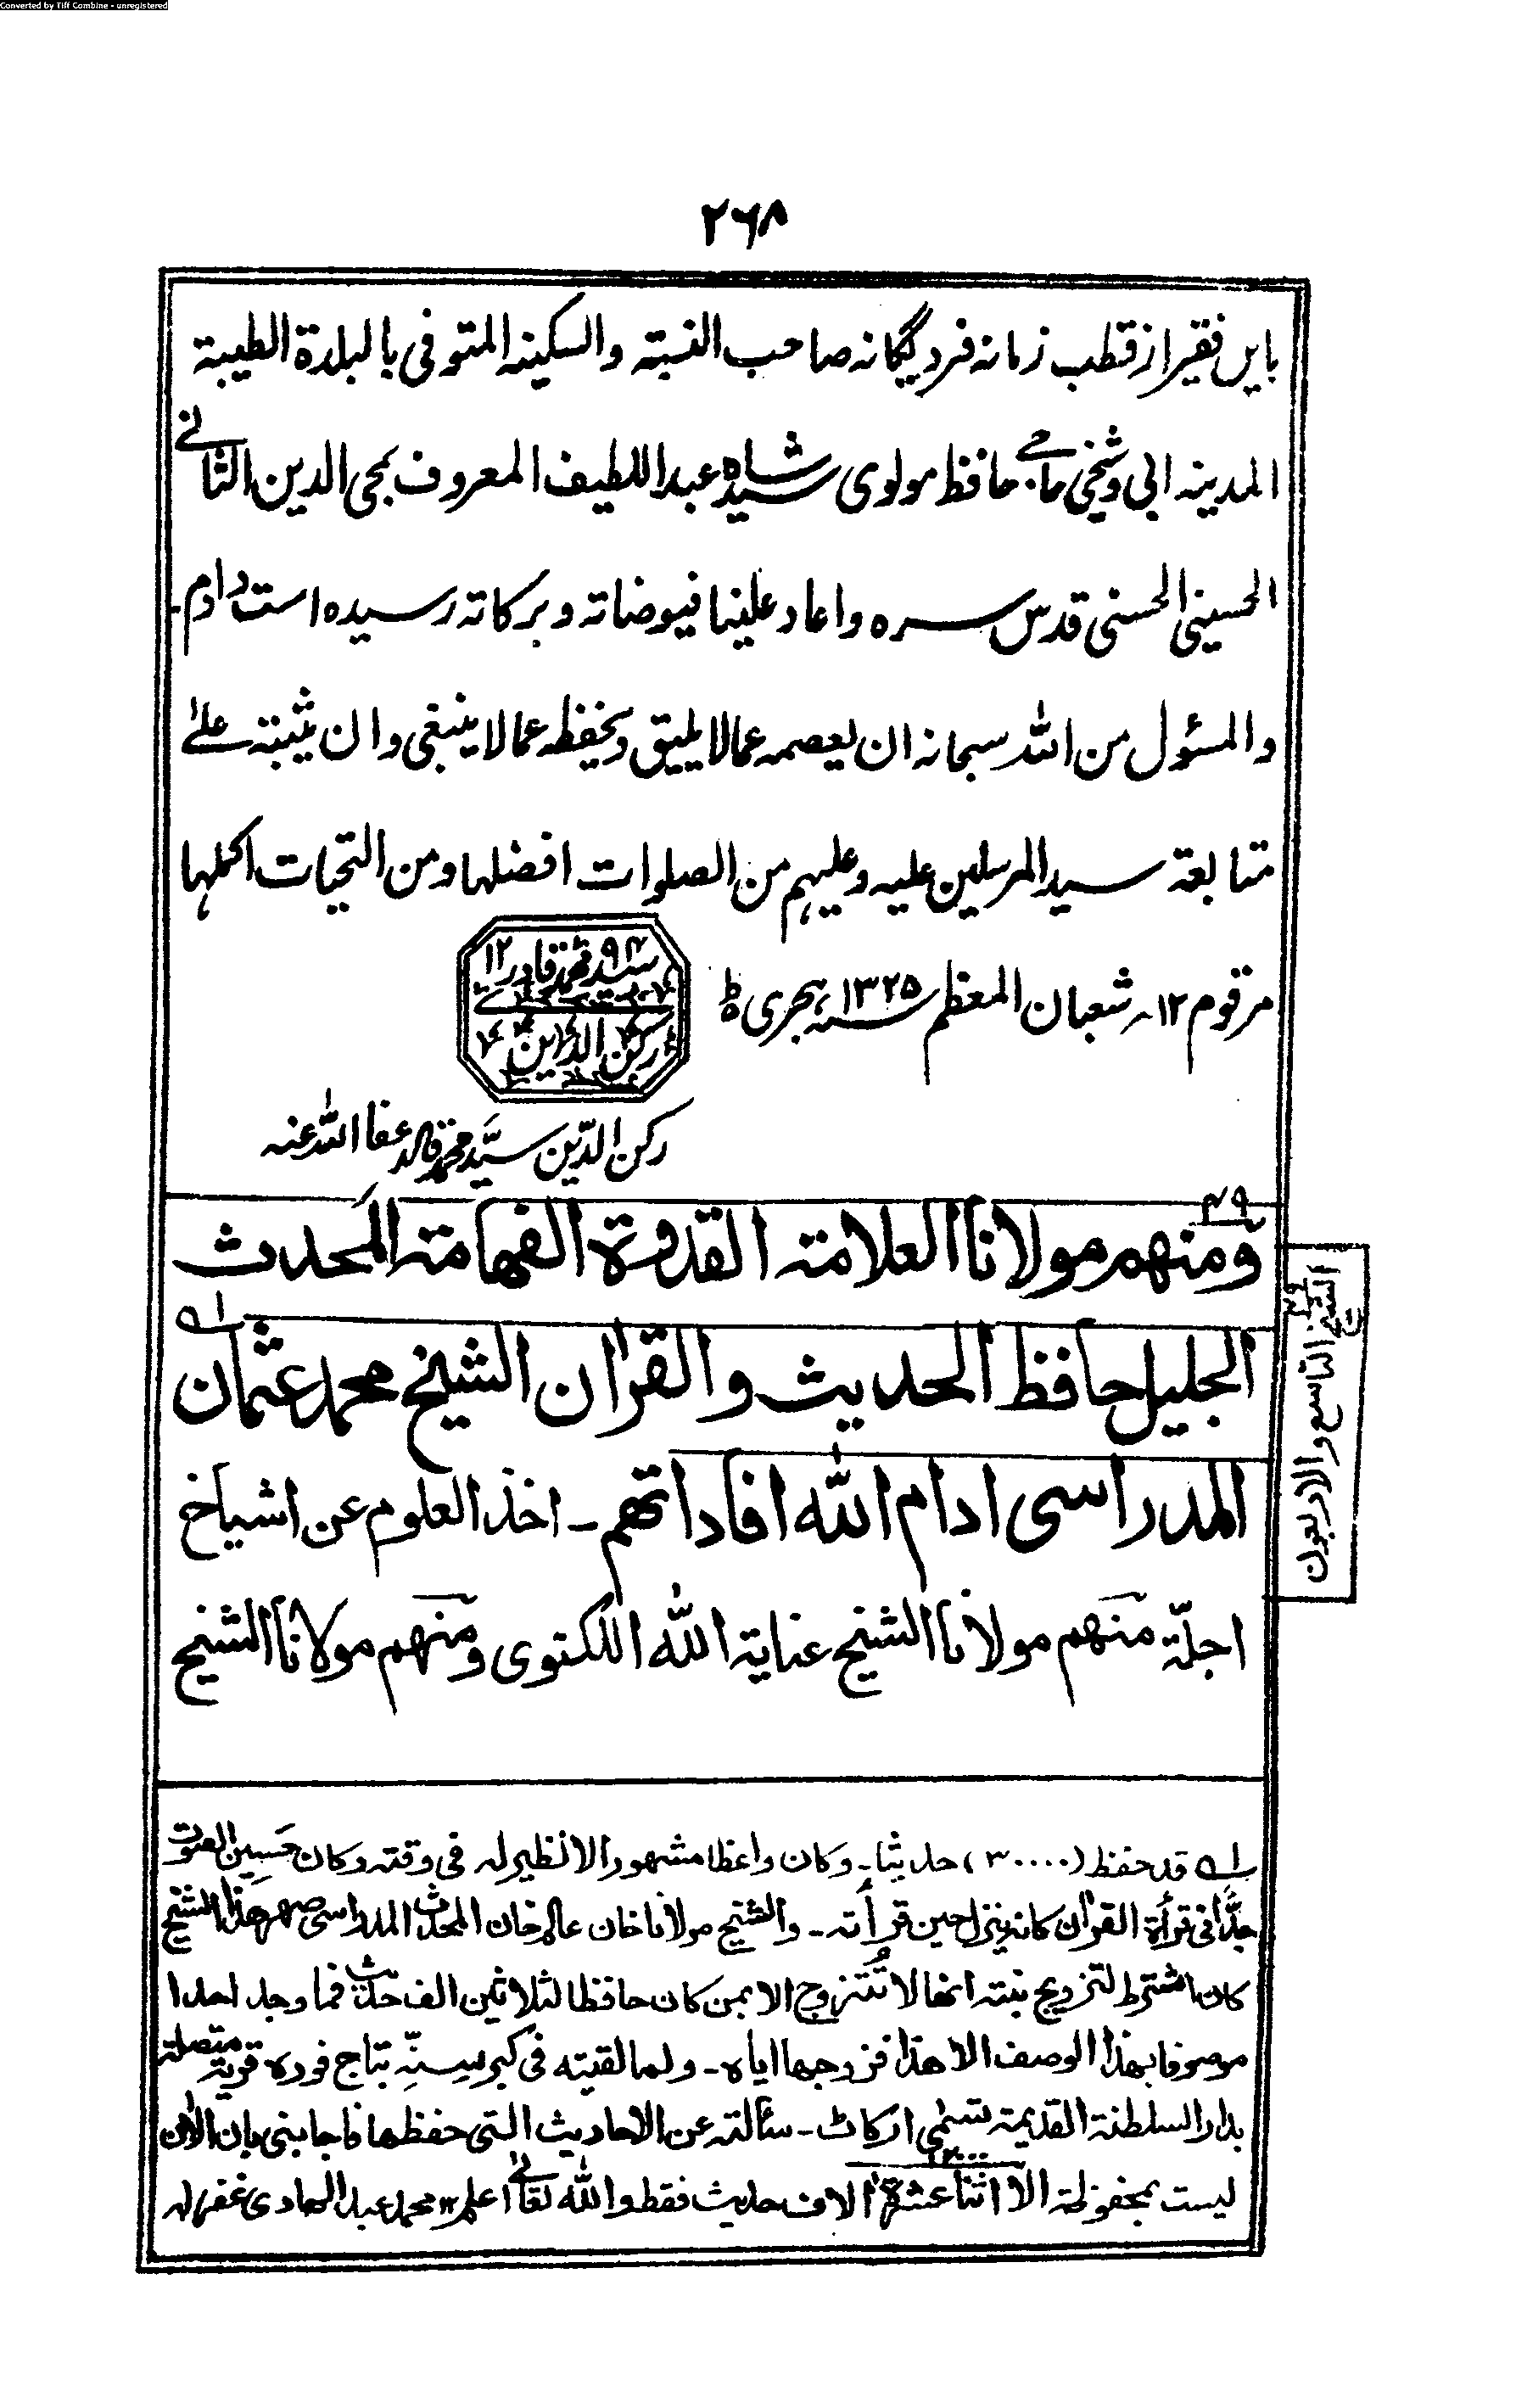 Converted by Tiff Combine - unregistered
۲۶۸
بایں فقیر از قطب زمانہ فرد یگانہ صاحب النسبتہ والسکینہ المتوفی بالبلدۃ الطیبۃ
المدینہ ابی وشیخی حافظ مولوی سید شاہ عبداللطیف المعروف بمحی الدین الثانی
الحسینی الحسنی قدس سرہ واعاد علینا فیوضاتہ وبرکاتہ رسیدہ است دادم۔
والمسئول من اللہ سبحانہ ان یعصمہ عمالا یلیق ویحفظہ عمالا ینبغی وان یثبتہ علےٰ
متابعۃ سید المرسلین علیہ وعلیہم من الصلوات افضلہا ومن التحیات اکملہا
مرقوم ۱۲؍ شعبان المعظم ۱۳۲۵ سنہ ہجری
سید محمد قادر
رکن الدین
رکن الدّین سیّد محمد قادر عفا اللہ عنہ
۴۹
ومنھم مولانا العلامۃ القدوۃ الفھامۃ المحدث
الجلیل حافظ الحدیث والقراٰن الشیخ محمد عثمان
المدراسی ادام اللہ افاداتھم ۔ اخذ العلوم عن اشیاخ
اجلّۃ منھم مولانا الشیخ عنایۃ اللہ اللکنوی ومنھم مولانا الشیخ
الشیخ التاسع والاربعون
۴۹
لہ قد حفظ (۳۰۰۰۰) حدیثا۔ وکان واعظا مشھورا لانظیر لہ فی وقتہ وکان حسین الصوت
جدًّا فی قرأۃ القراٰن کانہ ینزل حین قرأتہ ۔ والشیخ مولانا خان عالم خان المحدث المدراسی صھر ھذا الشیخ
کان اشترط لتزویج بنتہ انھا لا تُتزوج الا بمن کان حافظا لثلاثین الف حدیث فما وجد احدا
موصوفا بھذا الوصف الا ھذا فزوجھا ایاہ ۔ ولما لقیتہ فی کبر سِنّہِ بتاج فورہ قریۃ متصلۃ
بدار السلطنۃ القدیمۃ تسمٰی ارکاٹ ۔ سألتہ عن الاحادیث التی حفظھا فاجابنی بان الاٰن
لیست بمحفوظۃ الا اثنا عشرۃ اٰلاف حدیث فقط واللہ تعالٰی اعلم ۱۲ محمد عبد الھادی غفر لہ
۱۲۰۰۰